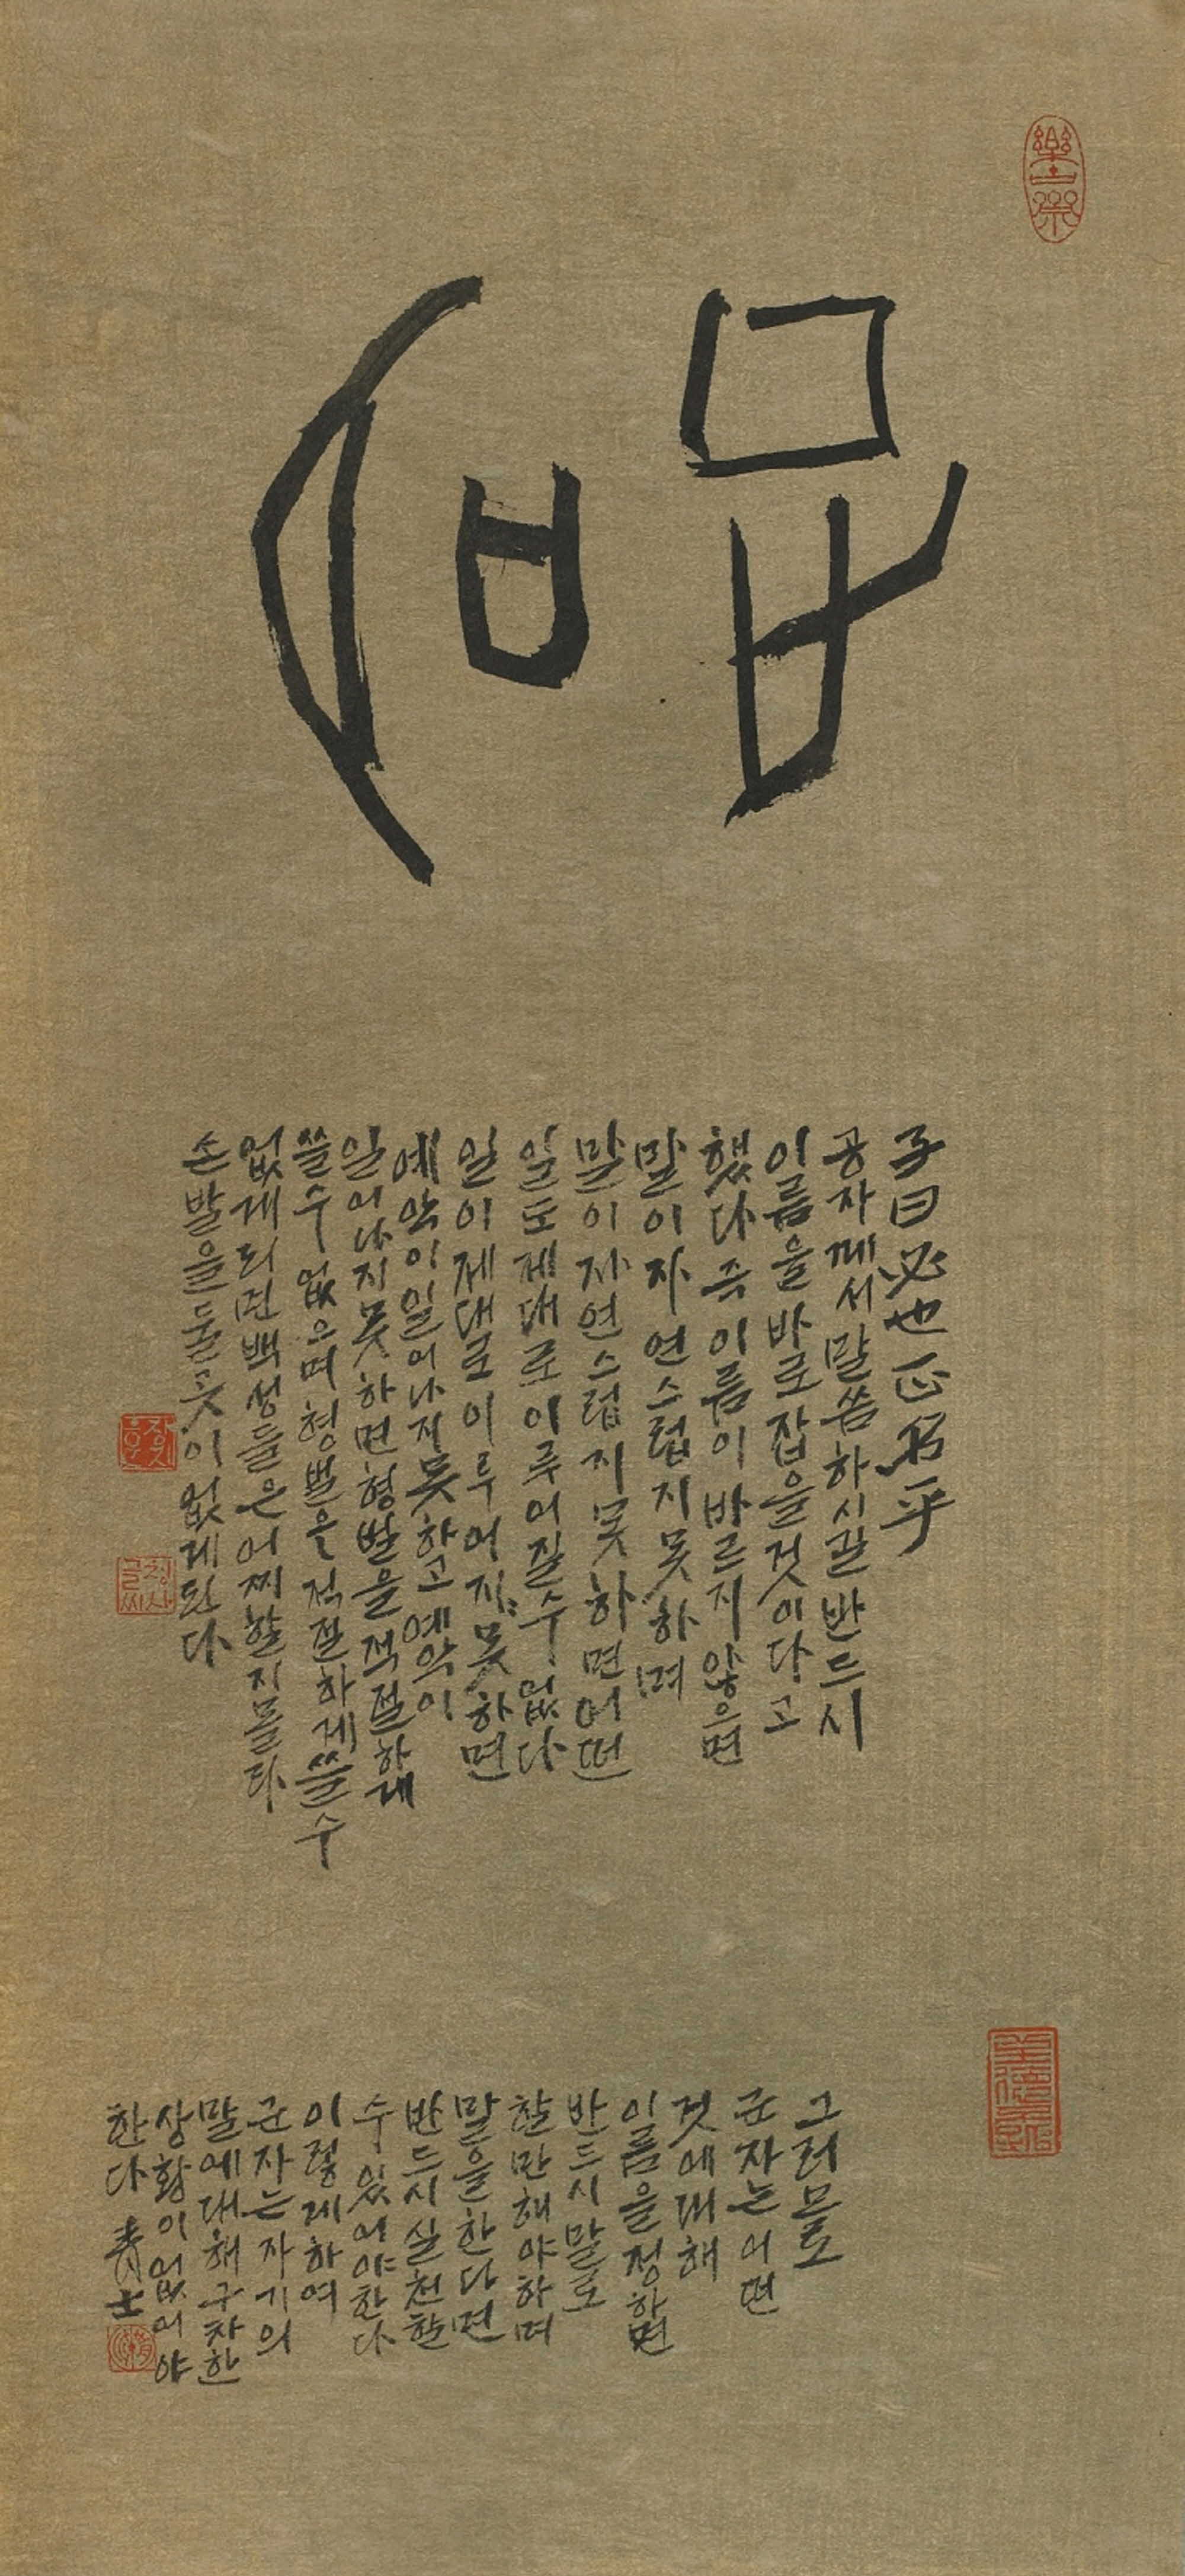 正名
子曰必也正名乎
공자께서말씀하시길반드시
이름을바로잡을것이다고
했다즉이름이바르지않으면
말이자연스럽지못하며
말이자연스럽지못하면어떤
일도제대로이루어질수없다
일이제대로이루어지못하면
예악이일어나지못하고예악이
일어나지못하면형벌을적절하게
쓸수없으며형벌을적절하게쓸수
없게되면백성들은어찌할지몰라
손발을둘곳이없게된다
그러므로
군자는어떤
것에대해
이름을정하면
반드시말로
할만해야하며
말을한다면
반드시실천할
수있어야한다
이렇게하여
군자는자기의
말에대해구차한
상황이없어야
한다